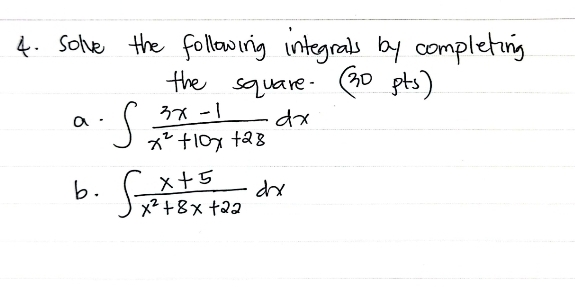 4. Solve the following integrals by completing
the square. (30 pts)
a. ∫ (3x - 1)/(x² + 10x + 28) dx
b. ∫ (x + 5)/(x² + 8x + 22) dx